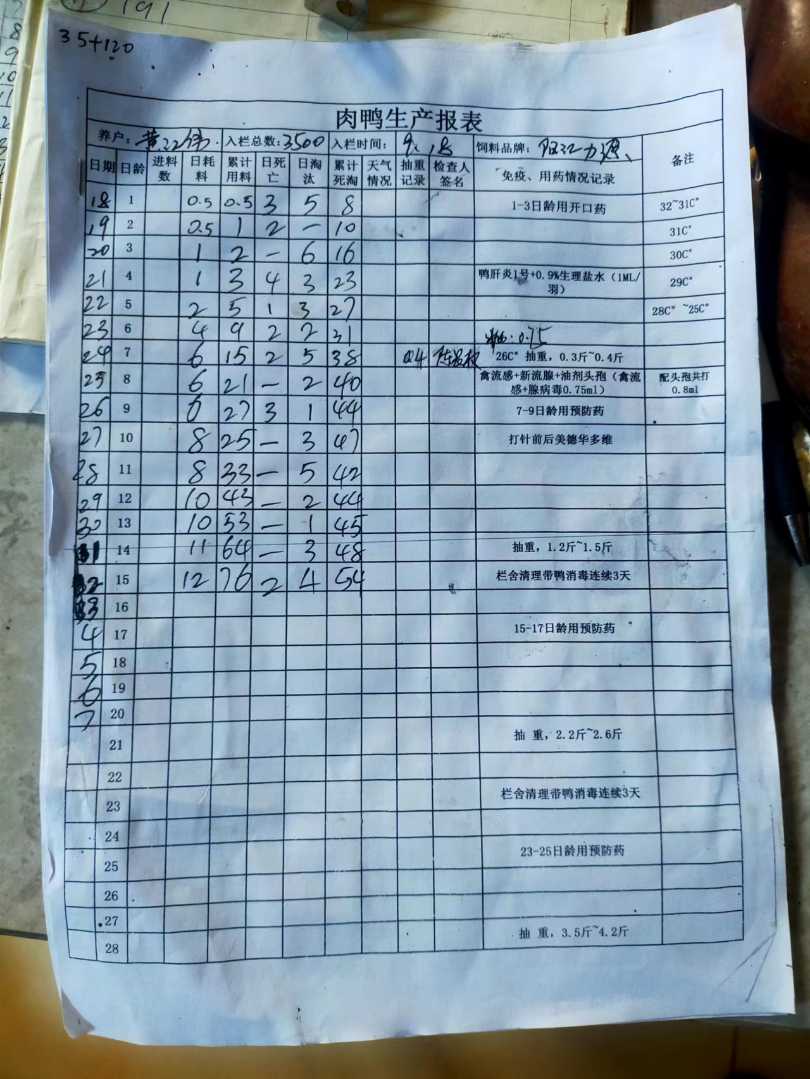 191
8
9
10
11
2
3
4
35+120
肉鸭生产报表
养户: 黄江 入栏总数:3500 入栏时间: 9.18 饲料品牌: 阳江力源 备注
日期 日龄 进料数 日耗料 累计用料 日死亡 日淘汰 累计死淘 天气情况 抽重记录 检查人签名 免疫、用药情况记录
18 1 0.5 0.5 3 5 8 1-3日龄用开口药 32~31C°
19 2 0.5 1 2 - 10 31C°
20 3 1 2 - 6 16 30C°
21 4 1 3 4 3 23 鸭肝炎1号+0.9%生理盐水（1ML/羽） 29C°
22 5 2 5 1 3 27 28C° ~25C°
23 6 4 9 2 2 31 0.75
24 7 6 15 2 5 38 0.4 26C° 抽重，0.3斤~0.4斤
25 8 6 21 - 2 40 禽流感+新流腺+油剂头孢（禽流感+腺病毒0.75ml） 配头孢共打0.8ml
26 9 6 27 3 1 44 7-9日龄用预防药
27 10 8 25 - 3 47 打针前后美德华多维
28 11 8 33 - 5 42
29 12 10 43 - 2 44
30 13 10 53 - 1 45
31 14 11 64 - 3 48 抽重，1.2斤~1.5斤
32 15 12 76 2 4 54 栏舍清理带鸭消毒连续3天
33 16
4 17 15-17日龄用预防药
5 18
6 19
7 20
21 抽 重，2.2斤~2.6斤
22
23 栏舍清理带鸭消毒连续3天
24
25 23-25日龄用预防药
26
27
28 抽 重，3.5斤~4.2斤